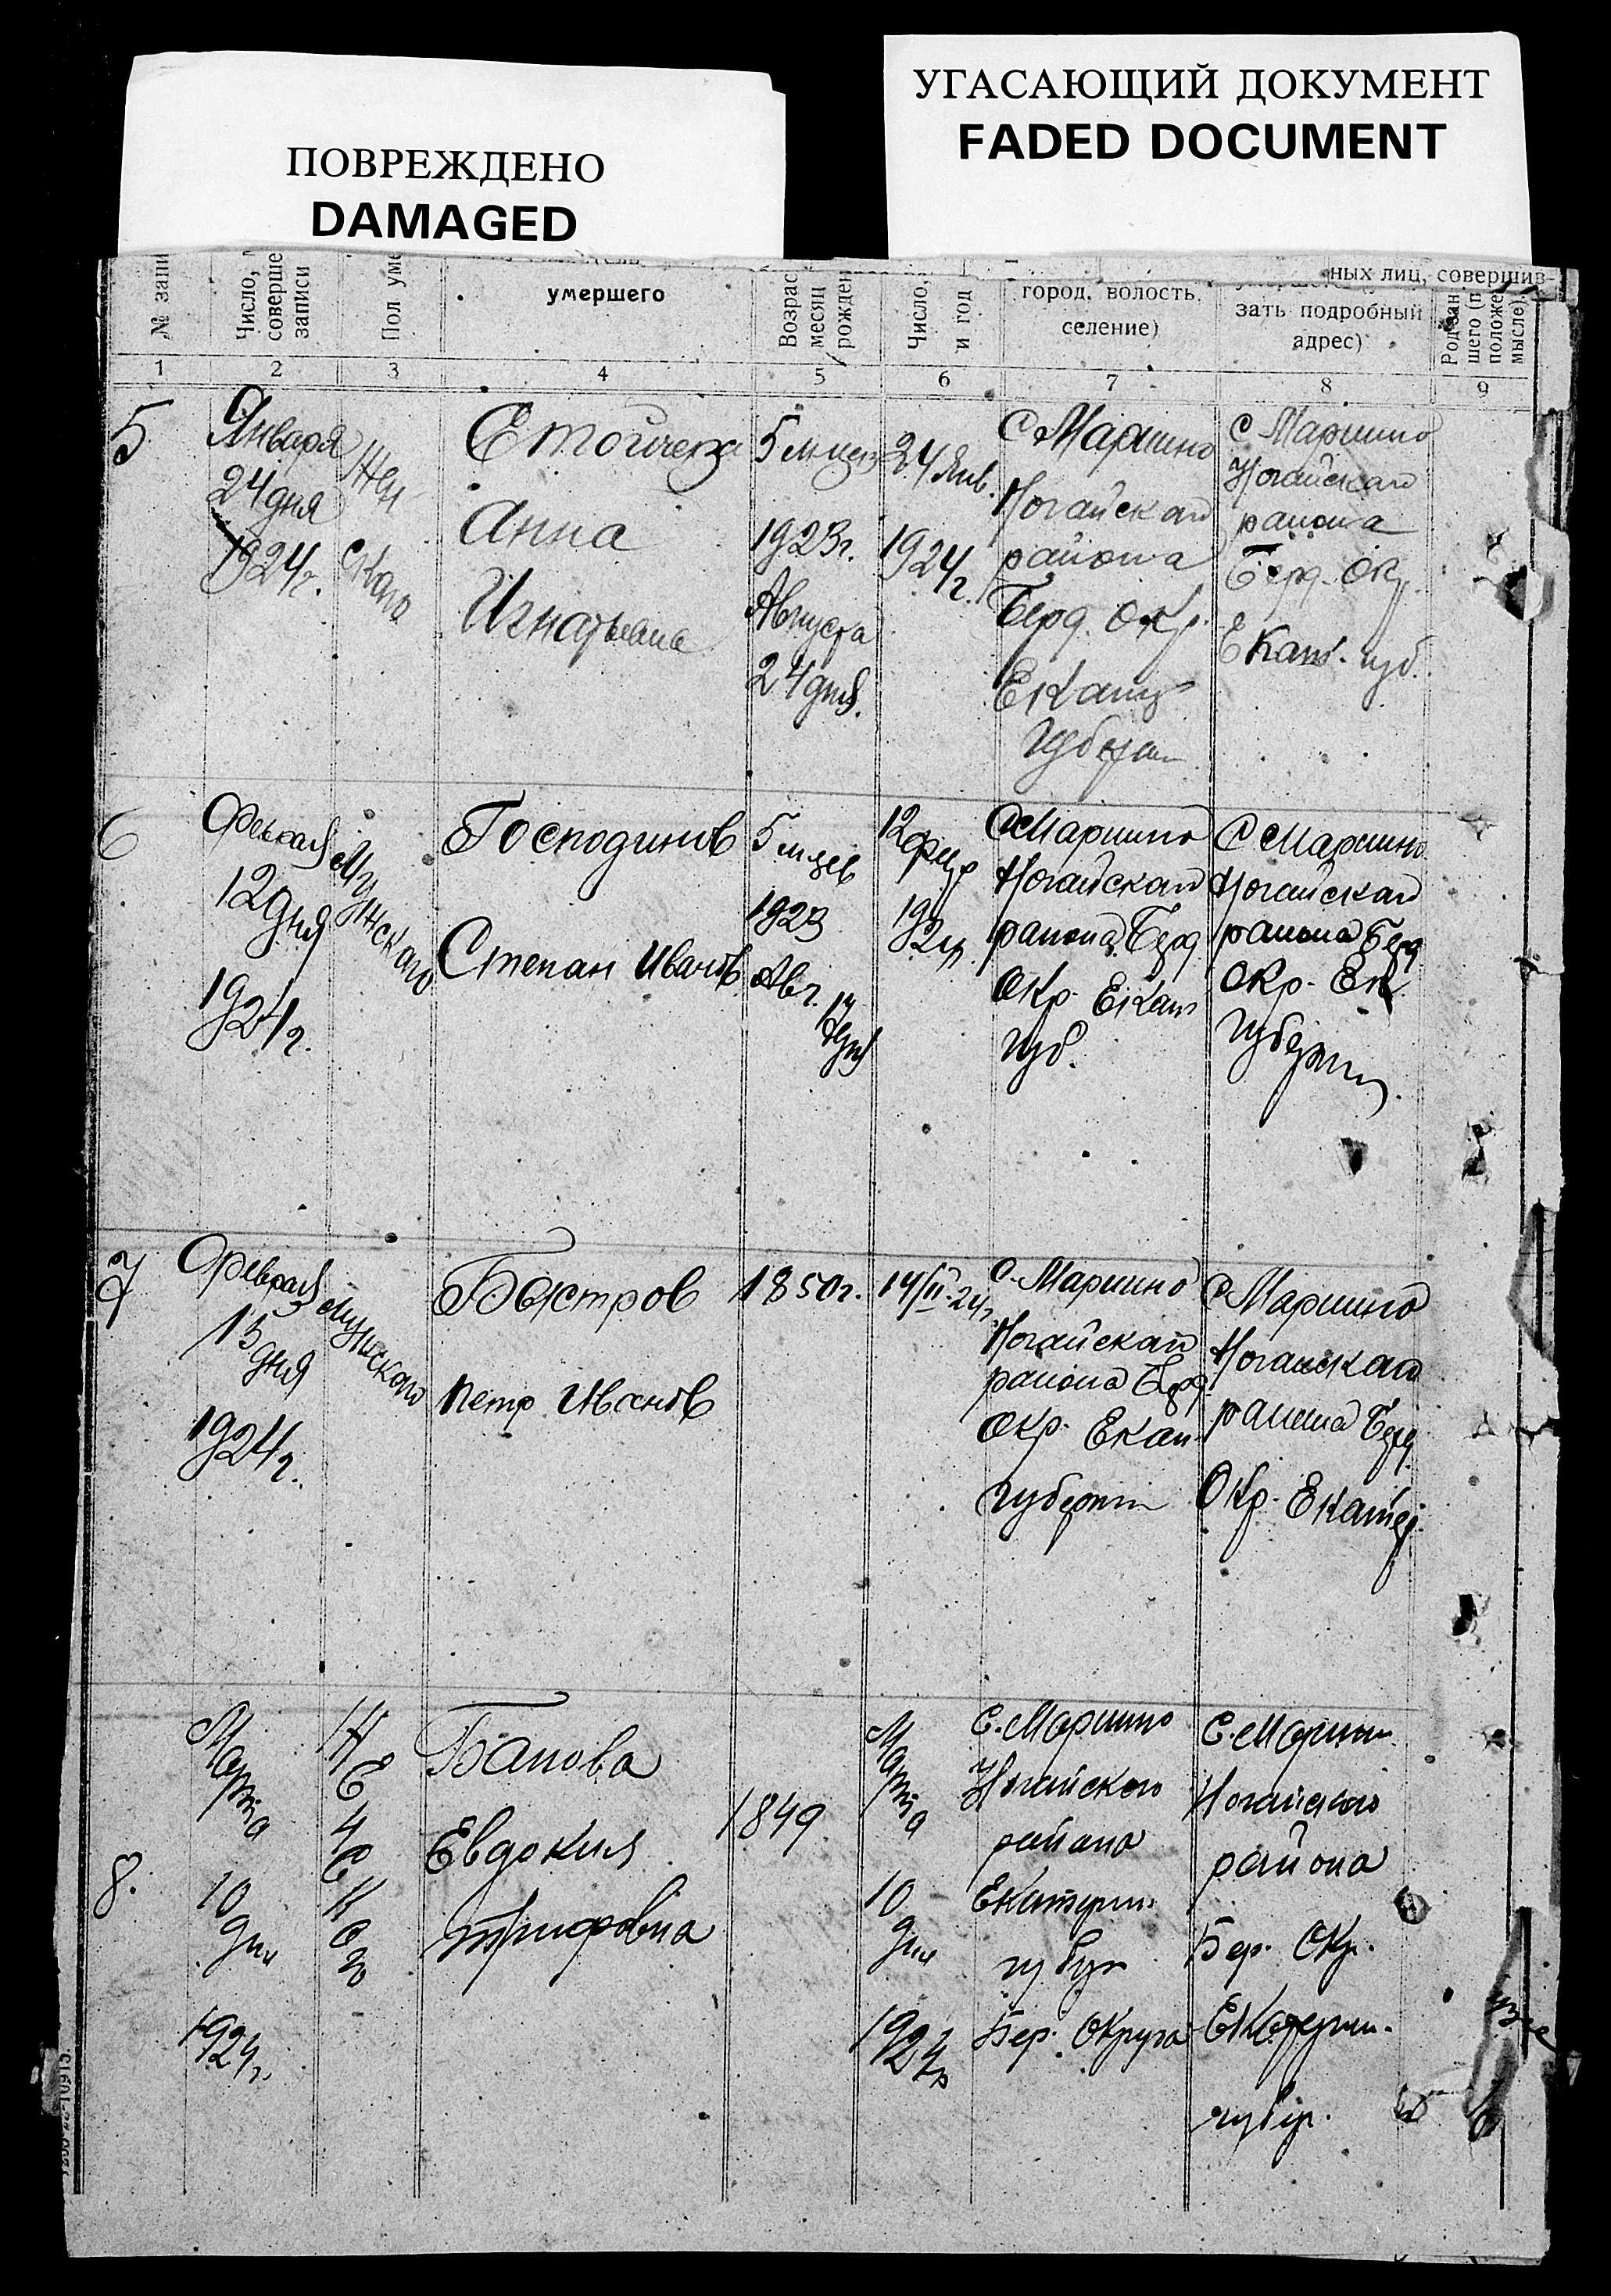 УГАСАЮЩИЙ ДОКУМЕНТ
FADED DOCUMENT
ПОВРЕЖДЕНО
DAMAGED
ных лиц, совершив-
№ запи
Число,
соверше
записи
Пол уме
умершего
Возрас
месяц
рожден
Число,
и год
город, волость,
селение)
зать подробный
адрес)
Род зан
шего (п
положе
мысле)
1 2 3 4 5 6 7 8 9
5
Января
24 дня
1924г.
Жен
ского
Анна
Игнатьевна
5 м-цев
1923г.
Августа
24 дня.
24 Янв.
1924
г.
С Марино
Ногайскаго
района
Берд. Окр.
Екатер
Губерн
С Марино
Ногайскаго
района
Берд. Ок.
Екат. губ.
6
Февраля
12 дня
1924г.
Мужского
Господинов
Степан Иванов
5 м-цев
1923
Авг. 14
дня
12 февр
1924
С Марино
Ногайскаго
района Берд
Окр. Екат
Губ.
С Марино
Ногайскаго
района Берд
Окр. Ек
Губерни
7
Февраля
15
дня
1924г.
Мужского
Быстров
Петр Иванов
1850г.
14/II-24г.
с. Марино
Ногайскаго
района Берд
Окр. Екат
Губерни
С Марино
Ногайскаго
района Берд
Окр. Екатер.
8.
Марта
10
дня
1924г.
Женского
Банова
Евдокия
Трифовна
1849
Марта
10
дня
1924г
С. Марино
Ногайского
района
Екатерин.
губер
Бер. Округа
С. Марин
Ногайского
района
Бер. Окр.
Екатерин.
губер.